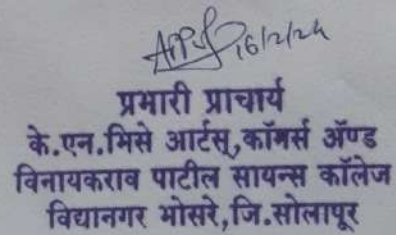 16/2/24
प्रभारी प्राचार्य
के.एन.भिसे आर्टस्,कॉमर्स ॲण्ड
विनायकराव पाटील सायन्स कॉलेज
विद्यानगर भोसरे,जि.सोलापूर